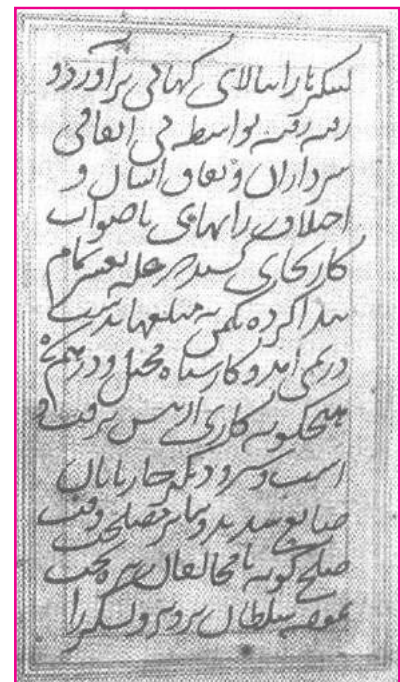 لشکرها را ببالای گهاتی برآورد و
رفته رفته بواسطه بی اتفاقی
سرداران و نفاق ایشان و
اختلاف رایهای ناصواب
کار بجای کشید که غله تعسر تمام
پیدا کرده یکمن به مبلغها بدست
درنمی آمد و کار سپاه مختل و درهم
هیچگونه کاری از پیش نرفت و
اسب و شتر و دیگر چارپایان
ضایع شدند و بنابر مصلحت وقت
صلح گونه با مخالفان تیره بخت
نموده سلطان پرویز و لشکر را